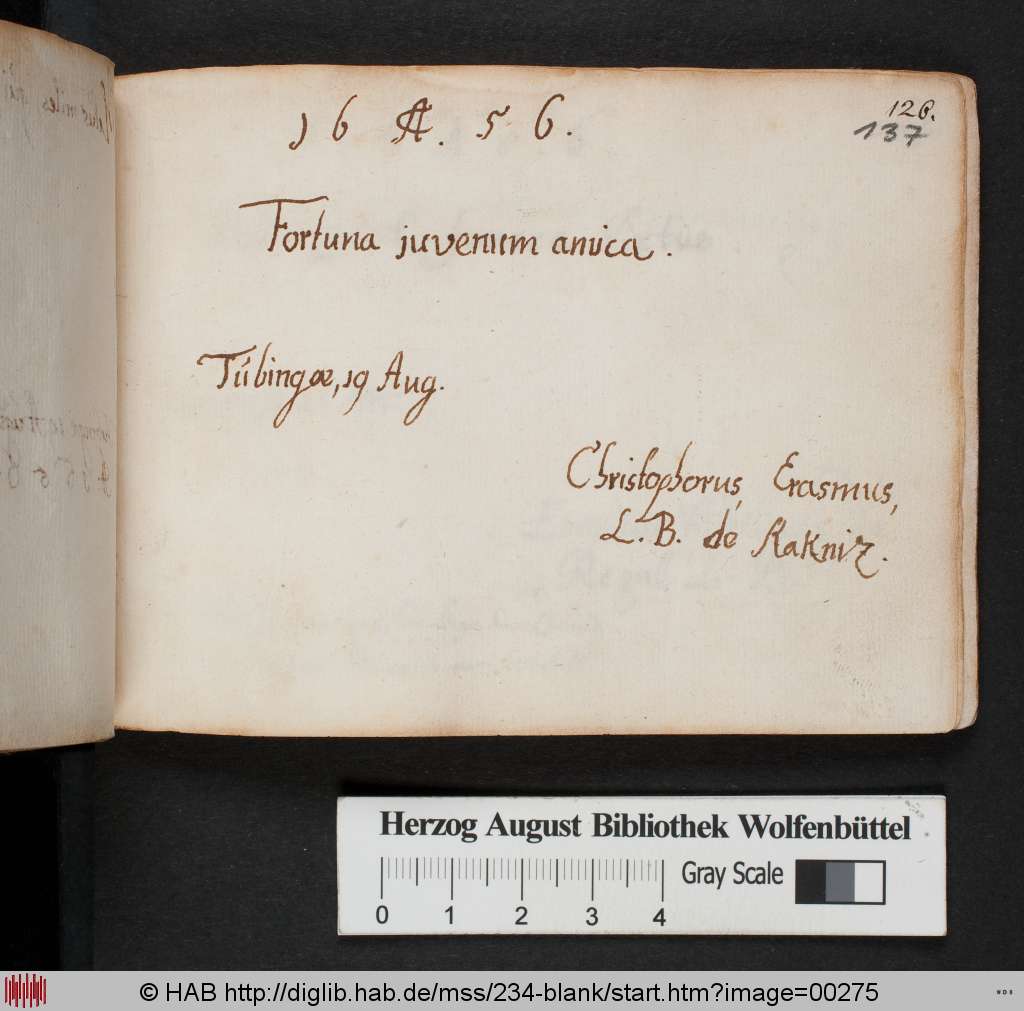 16 A. 56.
126.
137
Fortuna juvenum amica.
Túbingæ, 19 Aug.
Christophorus, Erasmus,
L. B. de Rakniz.
Herzog August Bibliothek Wolfenbüttel
0 1 2 3 4
Gray Scale
© HAB http://diglib.hab.de/mss/234-blank/start.htm?image=00275